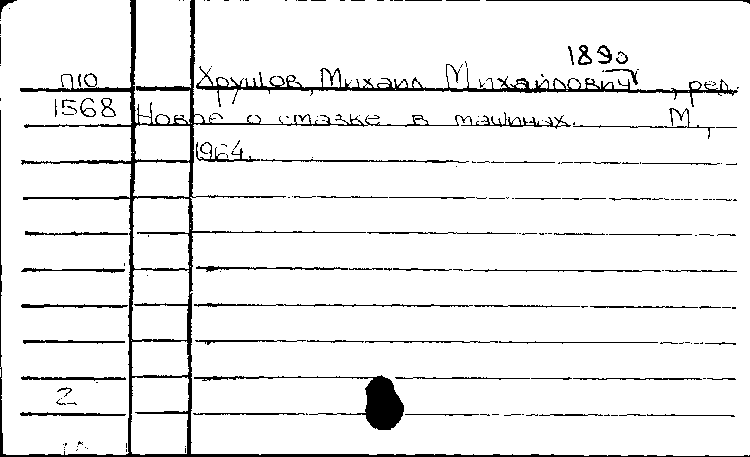 1890
П10 Хрущов, Михаил Михайлович, ред.
1568 Новое о смазке в машинах. М.,
1964.
2